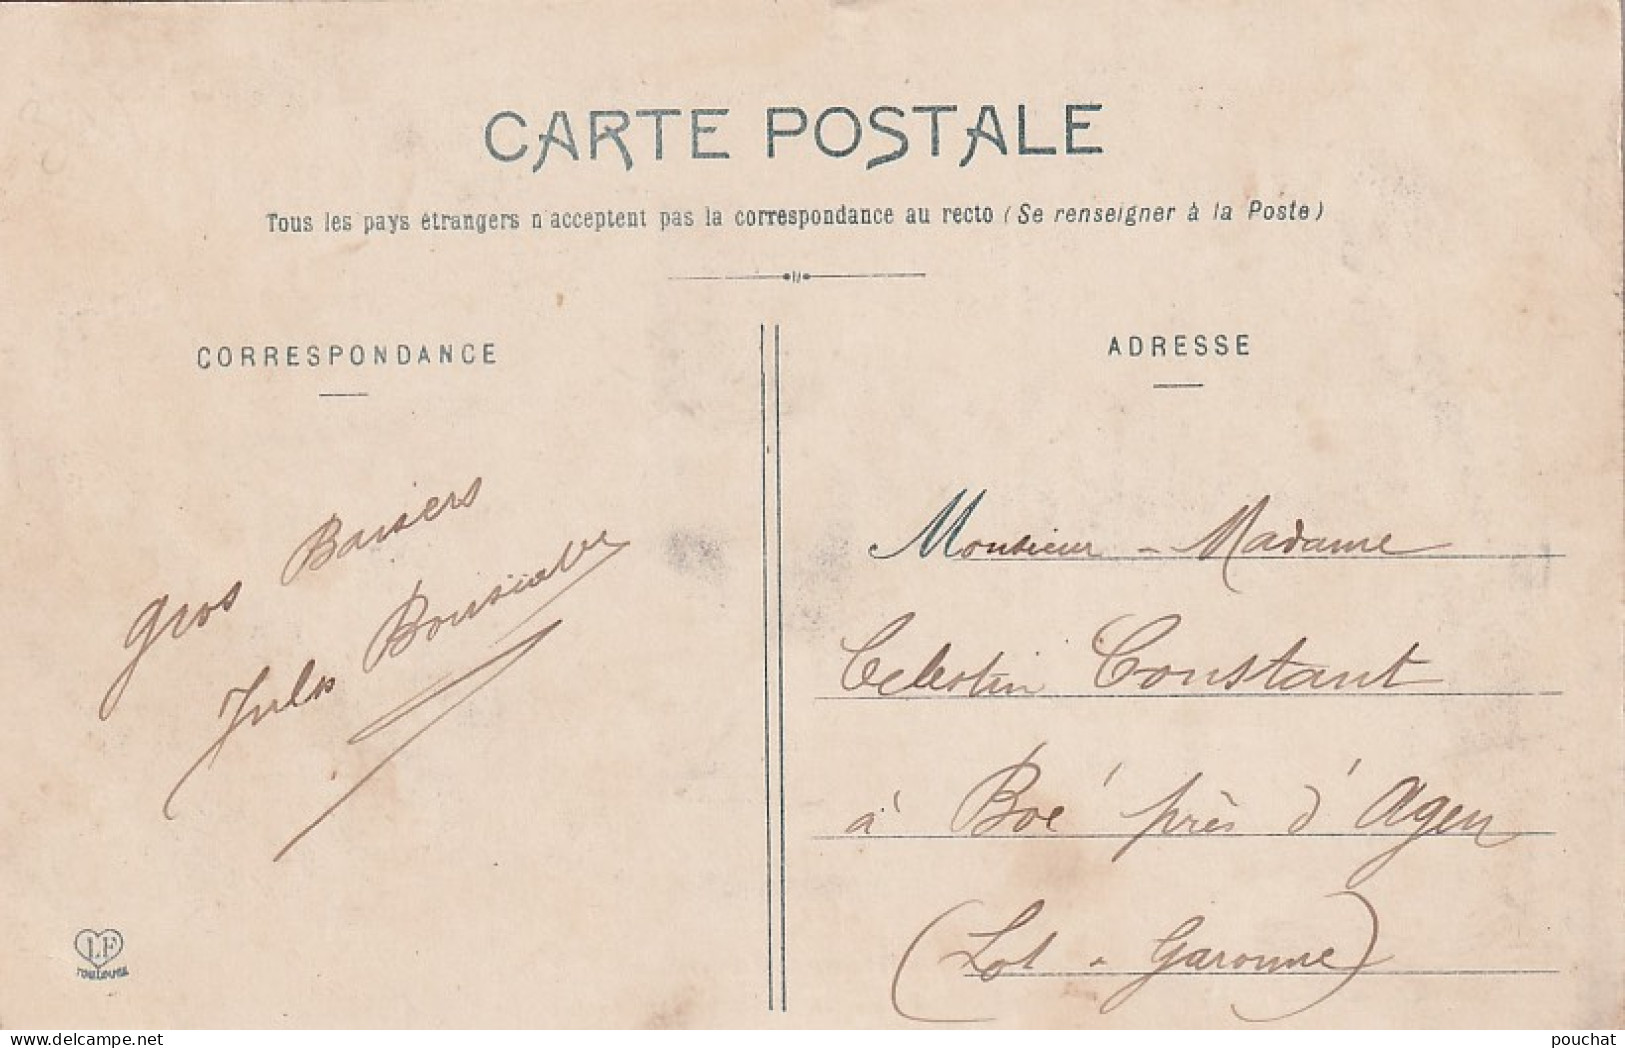 CARTE POSTALE
Tous les pays étrangers n'acceptent pas la correspondance au recto (Se renseigner à la Poste)
CORRESPONDANCE
ADRESSE
Gros Baisers
Jules
Monsieur - Madame
Celestin Constant
à Boé près d'Agen
(Lot - Garonne)
LF
TOULOUSE
delcampe.net
pouchat